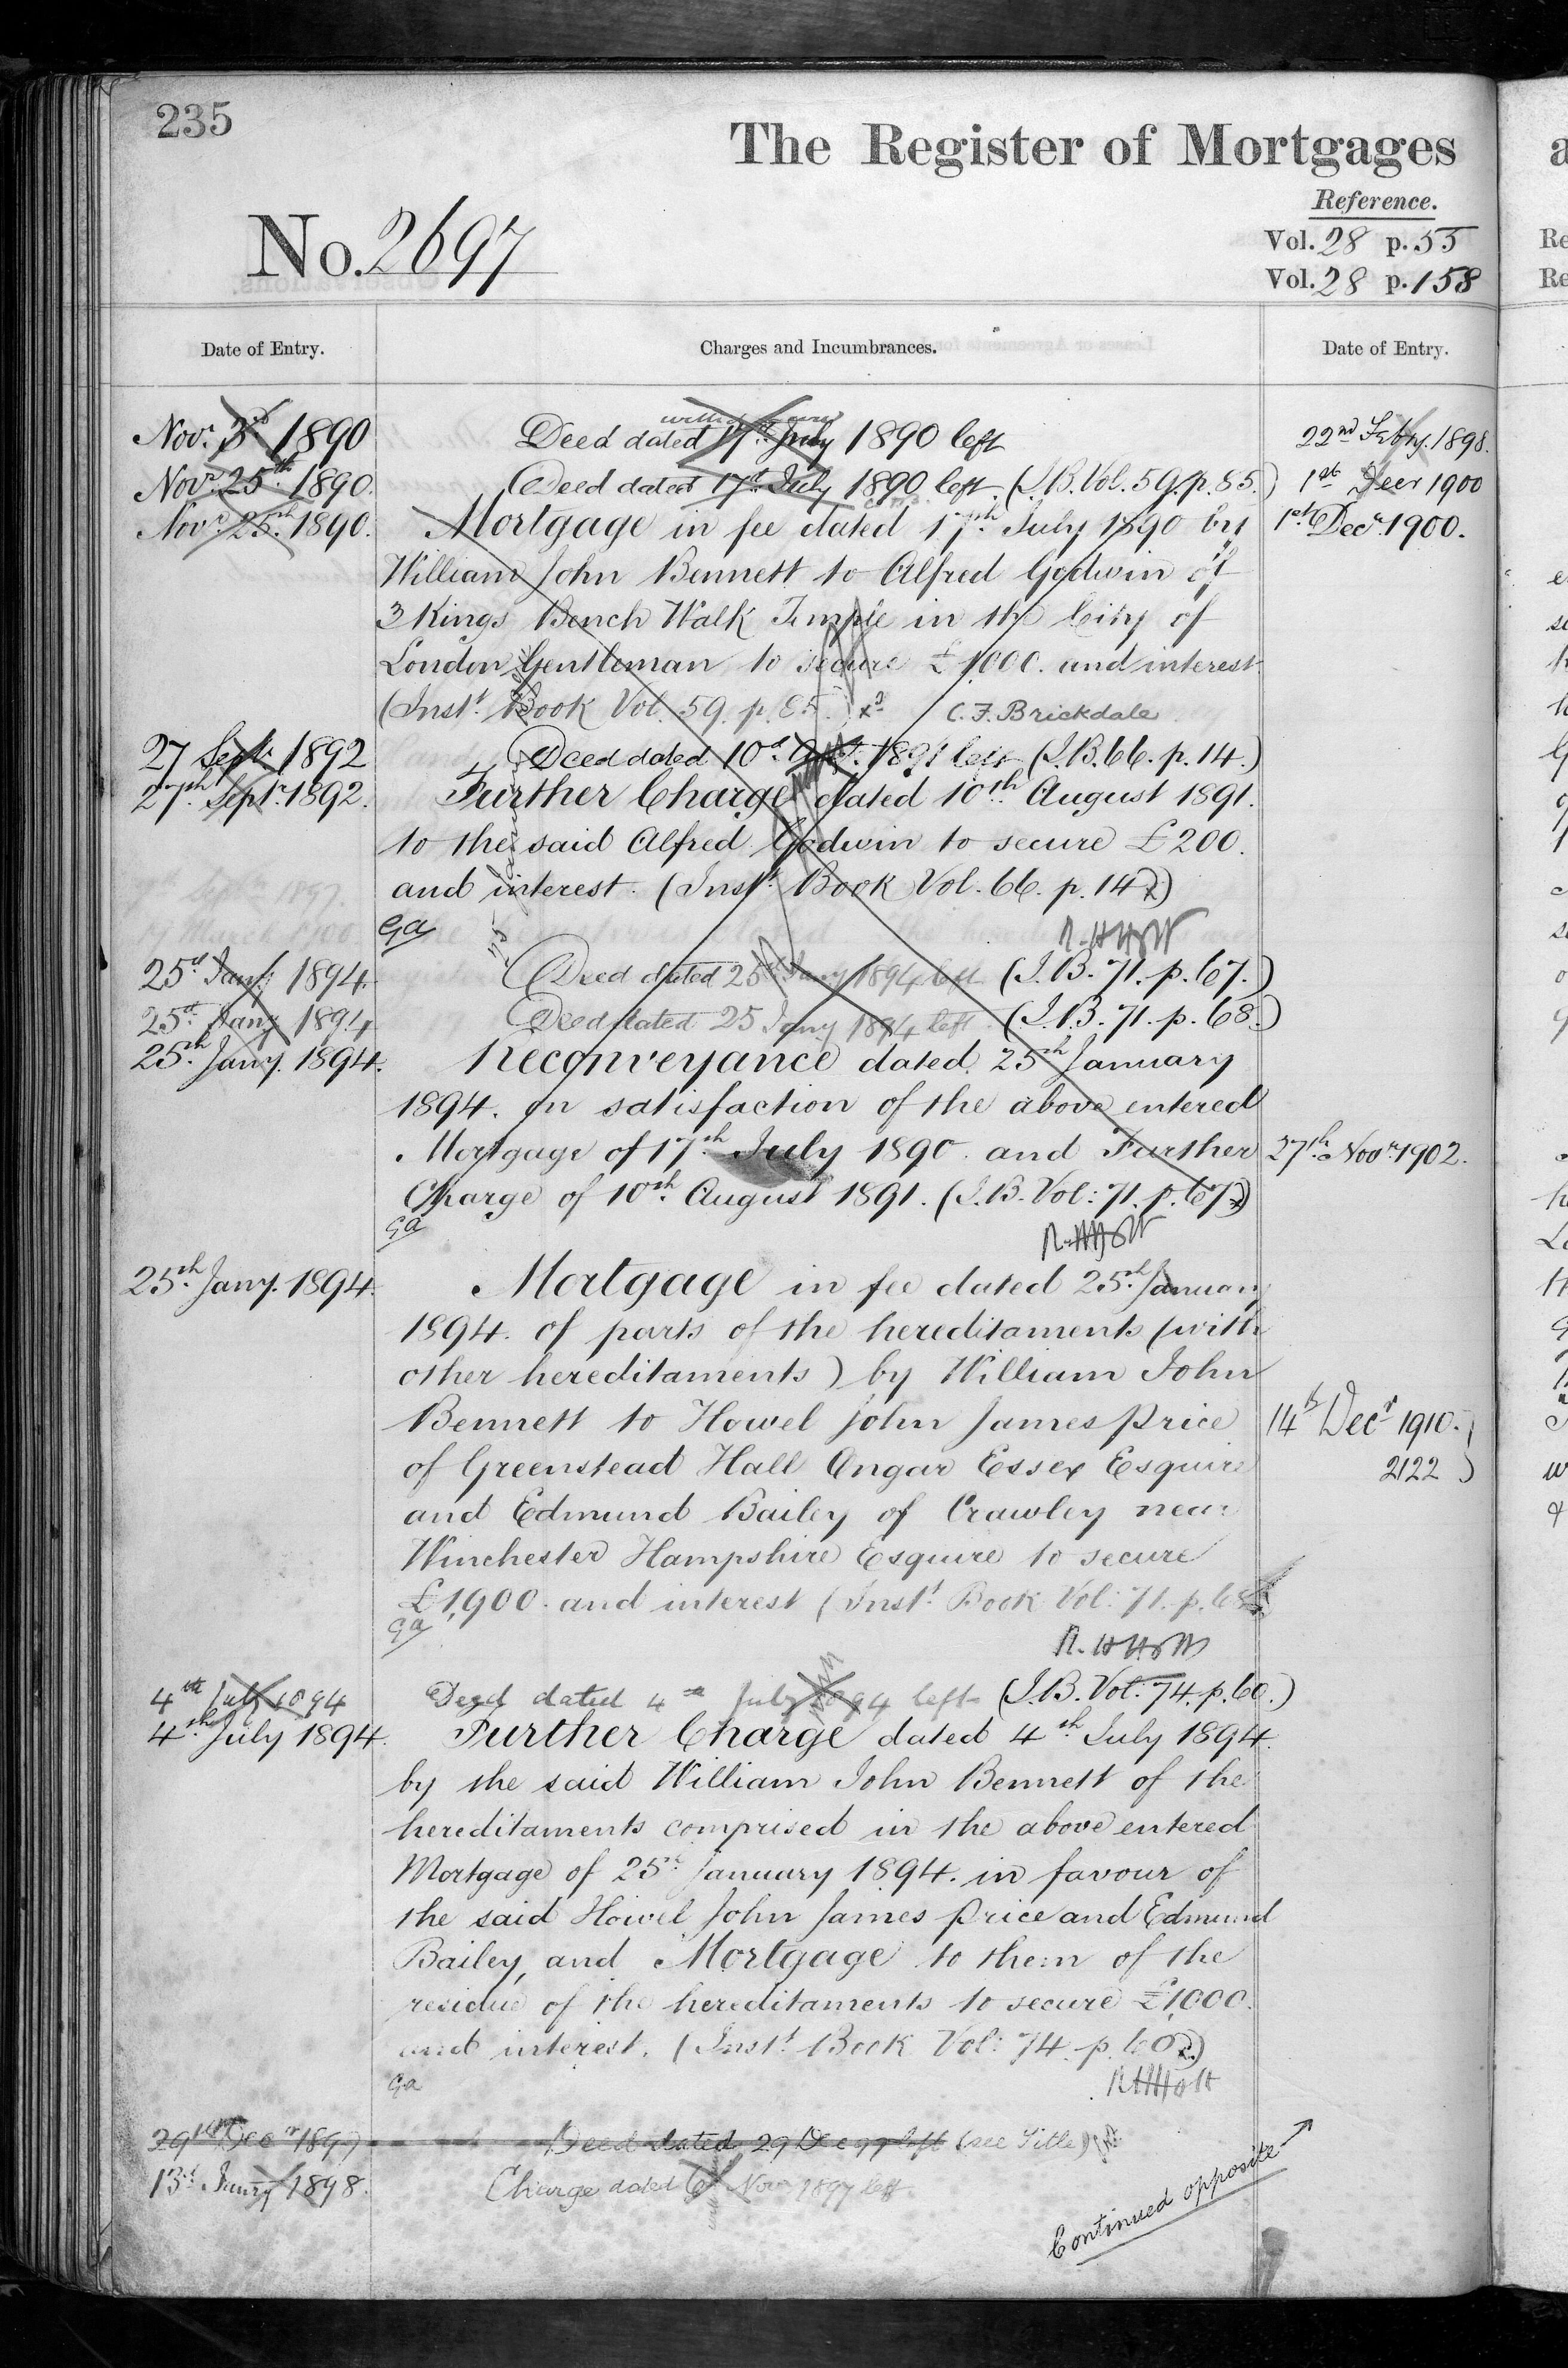 235
The Register of Mortgages
Reference.
No. 2697
Vol. 28 p. 55
Vol. 28 p. 158
Date of Entry. Charges and Incumbrances. Date of Entry.
withdrawn
Novr. 3rd 1890 Deed dated 17th July 1890 left 22nd Febry. 1898.
Novr. 25th 1890. Deed dated 17th July 1890 left. (I.B. Vol. 59. p. 85.) 1st Decr 1900
Novr. 25th 1890. Mortgage in fee dated 17th July 1890 by 1st Decr. 1900.
William John Bennett to Alfred Godwin of
3 Kings Bench Walk Temple in the City of
London Gentleman to secure £1000. and interest
(Inst. Book Vol. 59. p. 85.) C. F. Brickdale
27 Sept. 1892 Deed dated 10th Augt. 1891 left (I.B. 66. p. 14.)
27th Septr. 1892. Further Charge dated 10th August 1891.
to the said Alfred Godwin to secure £200.
and interest. (Inst. Book Vol. 66. p. 14)
GA
R. H. Holt
25th Jany. 1894. Deed dated 25th Jany 1894 left (I.B. 71. p. 67.)
25th Jany 1894 Deed dated 25 Jany 1894 left. (I.B. 71. p. 68.)
25th Jany. 1894. Reconveyance dated 25th January
1894. in satisfaction of the above entered
Mortgage of 17th July 1890 and Further 27th Novr. 1902.
Charge of 10th August 1891. (I.B. Vol: 71. p. 67)
GA
R. H. Holt
25th Jany. 1894. Mortgage in fee dated 25th January
1894. of parts of the hereditaments (with
other hereditaments) by William John
Bennett to Howel John James Price 14th Decr 1910.
of Greenstead Hall Ongar Essex Esquire 2122
and Edmund Bailey of Crawley near
Winchester Hampshire Esquire to secure
£1,900. and interest (Inst. Book Vol: 71. p. 68)
GA
R. H. Holt
4th July 1894 Deed dated 4th July 1894 left (I.B. Vol. 74. p. 60.)
4th July 1894. Further Charge dated 4th July 1894.
by the said William John Bennett of the
hereditaments comprised in the above entered
Mortgage of 25th January 1894. in favour of
the said Howel John James Price and Edmund
Bailey, and Mortgage to them of the
residue of the hereditaments to secure £1,000.
and interest. (Inst. Book Vol: 74. p. 60)
GA
R. H. Holt
29th Decr 1897 Deed dated 29 Dec 97 left (see Title)
13th Janry 1898. Charge dated 6th Novr 1897 left.
Continued opposite